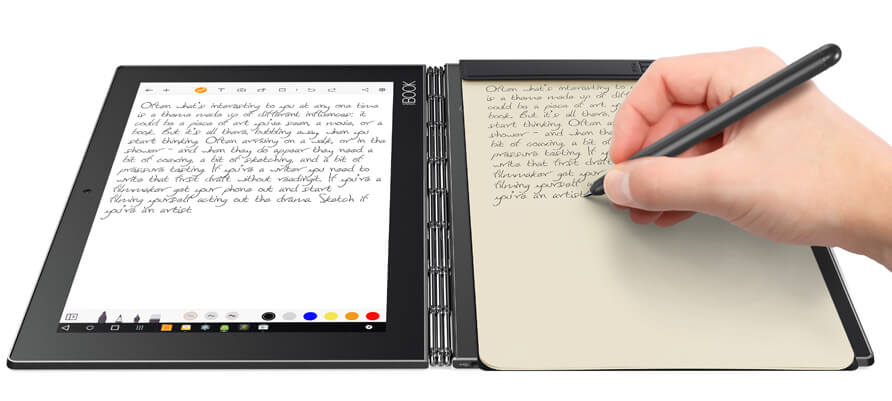 Often what's interesting to you at any one time
is a theme made up of different influences: it
could be a piece of art you've seen, a movie, or a
book. But it's all there, bubbling away when you
start thinking. Often arriving on a walk, or in the
shower - and when they do appear they need a
bit of coaxing, a bit of sketching, and a bit of
pressure tasting. If you're a writer you need to
write that first draft without readingit. If you're a
filmmaker get your phone out and start
filming yourself acting out the drama. Sketch if
you're an artist
BOOK
Often what's interesting to
is a theme made up of dif
could be a piece of art y
book. But it's all there,
start thinking. Often a
shower - and when th
bit of coaxing, a bit
pressure tasting. If y
write that first draft
filmmaker get your
filming yourself
you're an artist